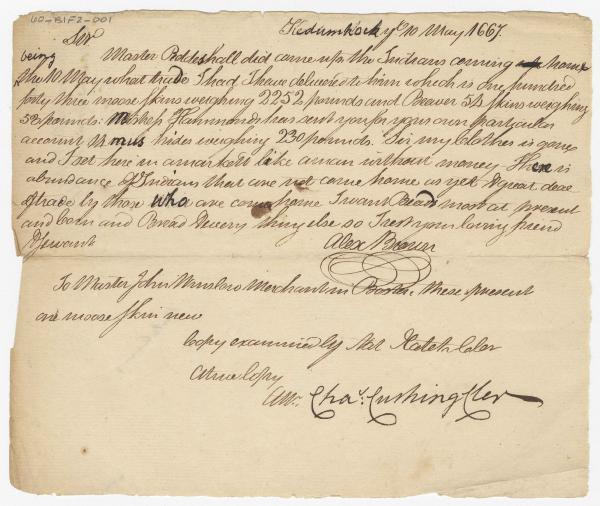 60-B1F2-001
Kedumkock ye 10 May 1667.
Sir
being
Master Paddeshall did come up the Indians coming home
the 10 May what trade I had I have delivered to him which is one hundred
forty three moose skins weighing 2252 pounds and Beaver skins weighing
pounds. Bishop Hammond has sent you for your own particular
account hides weighing 230 pounds. Sir my Clothes is gone
and I set here in a markett like a man without money There is
abundance of Indians that are not come home as yet & great deal
of trade by those who are come home I want Beads most at present
and Corn and Bread & every thing else so I rest your loving friend
& Servant
Alex Brown
To Master John Winslow Merchant in Boston these present
one moose skin new
Copy examined by Nat Hatch Cler
A true Copy
Attr. Chas. Cushing Cler